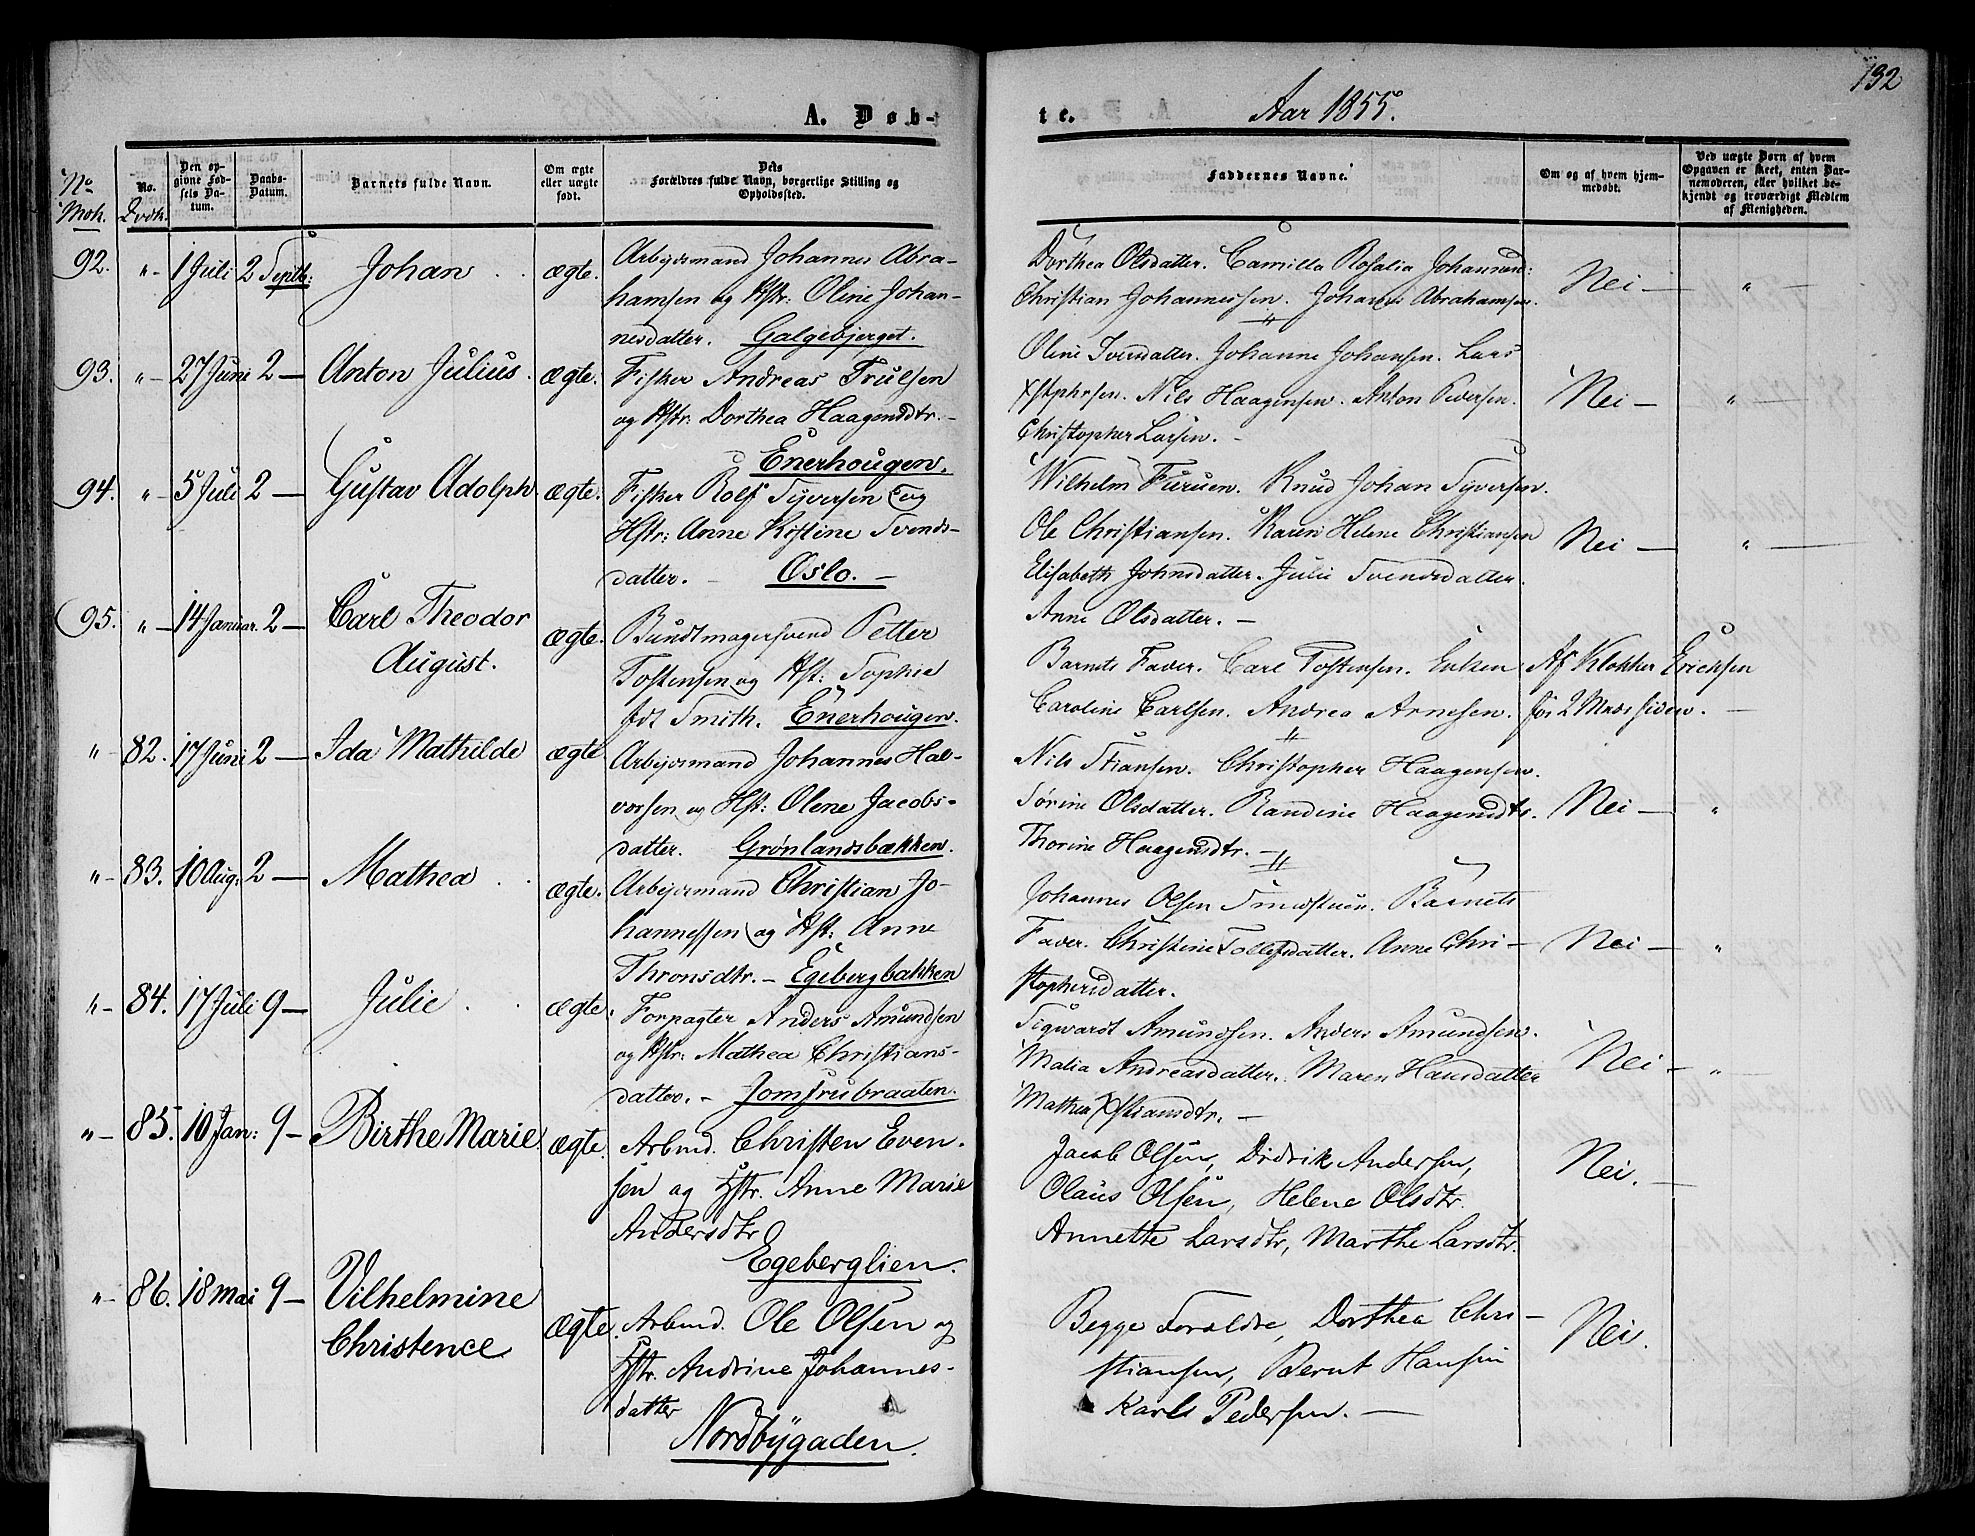 132
A. Døb-
te.
Aar 1855.
No. Mdk.
No. Qvdk.
Den opgivne Fødsels Datum.
Daabs-Datum.
Barnets fulde Navn.
Om ægte eller uægte født.
Dets Forældres fulde Navn, borgerlige Stilling og Opholdssted.
Faddernes Navne.
Om og af hvem hjemmedøbt.
Ved uægte Børn af hvem Opgaven er skeet, enten Barnemoderen, eller hvilket bekjendt og troværdigt Medlem af Menigheden.
92. " 1 Juli 2 Septb: Johan ægte.
Arbejdsmand Johannes Abra-
hamsen og Hstr: Oline Johan-
nesdatter. Galgebjerget.
Dorthea Olsdatter. Camilla Rosalia Johannesd:
Christian Johannessen. Johannes Abrahamsen.
Nei — "
93. " 27 Juni 2 — Anton Julius. ægte.
Fisker Andreas Trulsen
og Hstr: Dorthea Haagensdtr. —
Enerhougen.
Oline Svendsdatter. Johanne Johansen. Lars
Xstphrsen. Nils Haagensen. Anton Pedersen.
Christopher Larsen. —
Nei — "
94. " 5 Juli 2 — Gustav Adolph ægte.
Fisker Rolf Syversen og
Hstr: Anne Kistine Svends-
datter. — Oslo. —
Wilhelm Furuen. Knud Johan Syversen.
Ole Christiansen. Karen Helene Christiansen
Elisabeth Johnsdatter. Julie Svendsdatter.
Anne Olsdatter. —
Nei — "
95. " 14 Januar 2 — Carl Theodor
August. ægte.
Bundtmagersvend Petter
Tostensen og Hst: Sophie
fdt Smith. Enerhougen.
Barnets Fader. Carl Tostensen. Enken
Caroline Carlsen. Andrea Arnesen.
Af Klokker Ericksen
for 2 Mndr siden. —
" 82. 17 Juni 2 — Ida Mathilde ægte
Arbejdsmand Johannes Hal-
vorsen og Hst: Olene Jacobs-
datter. Grønlandsbækken.
Nils Stiansen. Christopher Haagensen.
Sørine Olsdatter. Randine Haagensdtr.
Thorine Haagensdtr. —
Nei — "
" 83. 10 Aug: 2 — Mathea ægte.
Arbejdsmand Christian Jo-
hannessen og Hst: Anne
Thronsdtr. — Egebergbakken
Johannes Olsen Smedstuen. Barnets
Fader. Christine Tollefsdatter. Anne Chri-
stophersdatter.
Nei — "
" 84. 17 Juli 9 — Julie ægte.
Forpagter Anders Amundsen
og Hstr: Mathea Christians-
datter. — Jomfrubraaten.
Sigvardt Amundsen. Anders Amundsen.
Malia Andreasdatter. Maren Hansdatter
Mathea Xstiansdtr. —
Nei — "
" 85. 10 Jan: 9 — Birthe Marie. ægte.
Arbmd. Christen Even-
sen og Hstr. Anne Marie
Andersdtr
Egeberglien.
Jacob Olsen, Didrik Andersen,
Olaus Olsen, Helene Olsdtr.
Annette Larsdtr, Marthe Larsdtr.
Nei. —
" 86. 18 Mai 9 — Vilhelmine
Christence ægte.
Arbmd. Ole Olsen og
Hstr. Andrine Johannes-
datter
Nordbygaden.
Begge Foræeldre, Dorthea Chri-
stiansen, Bernt Hansen
Karls Pedersen. —
Nei.